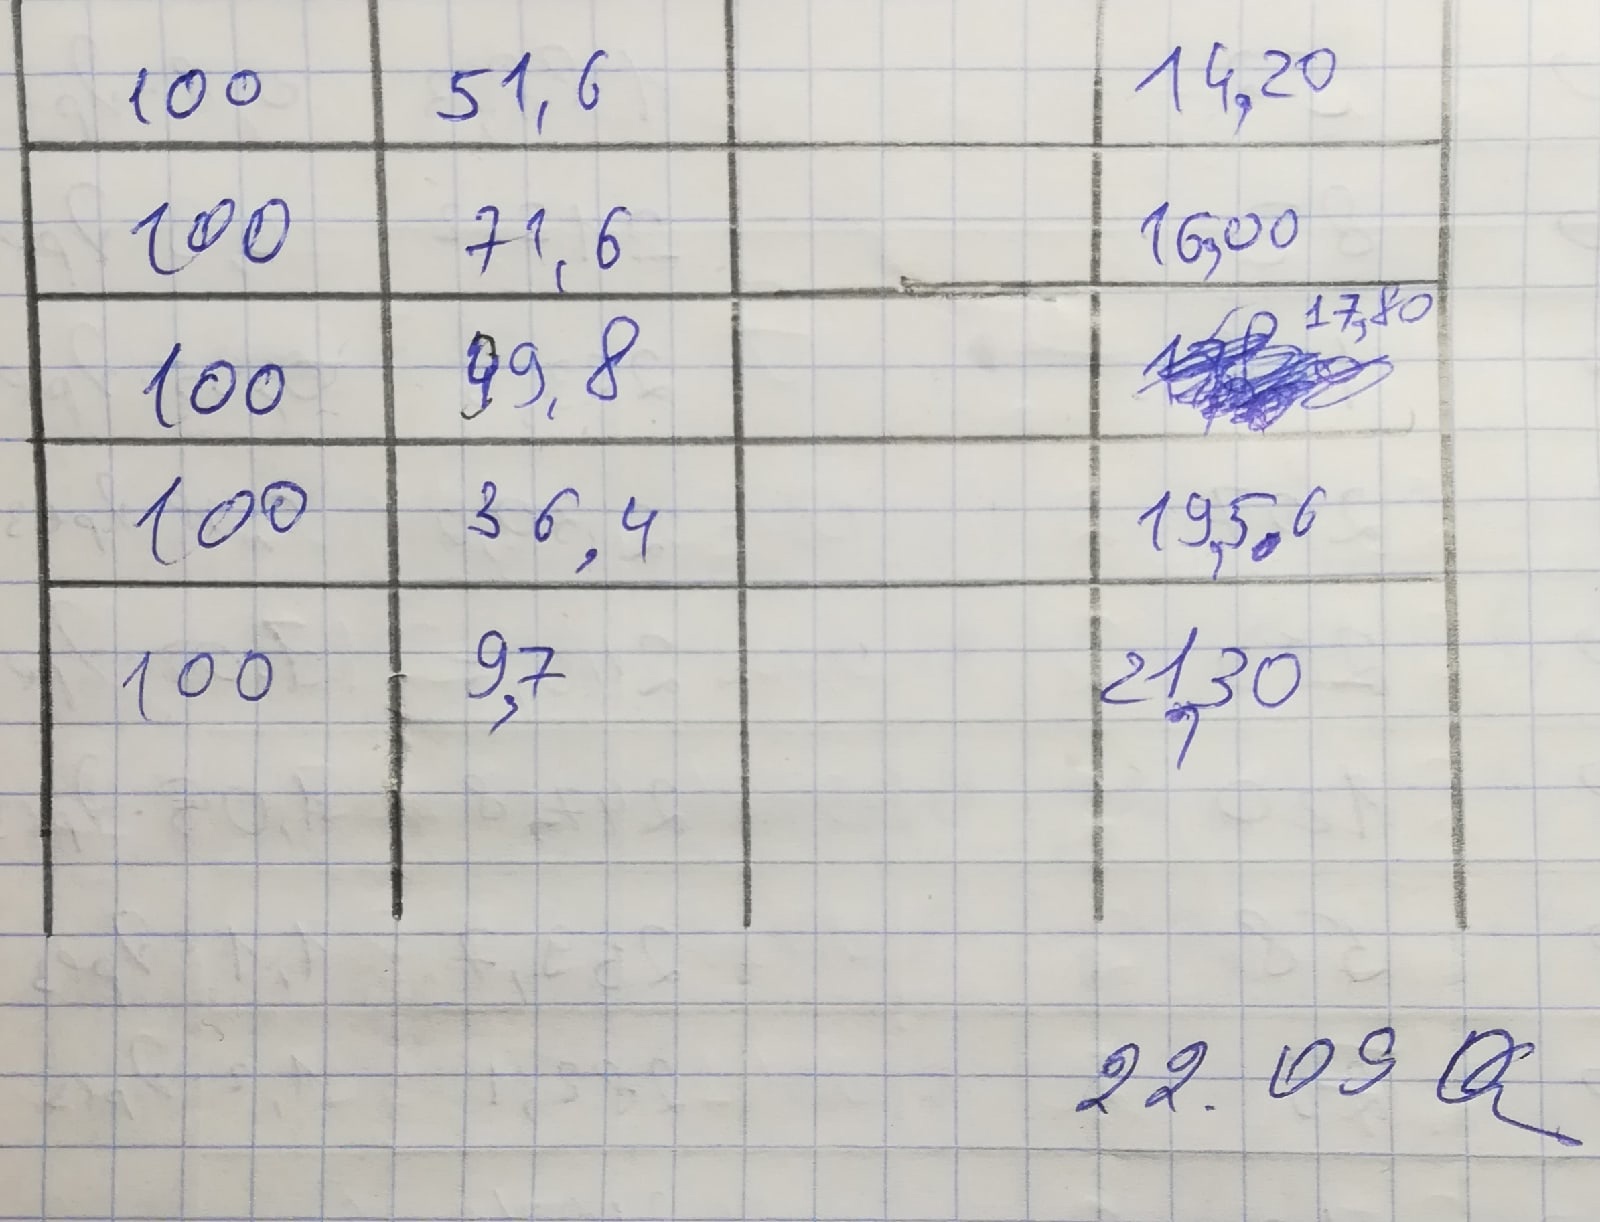 100 51,6 14,20
100 71,6 16,00
100 99,8 17,80
100 36,4 19,5 6
100 9,7 21,30
22.09